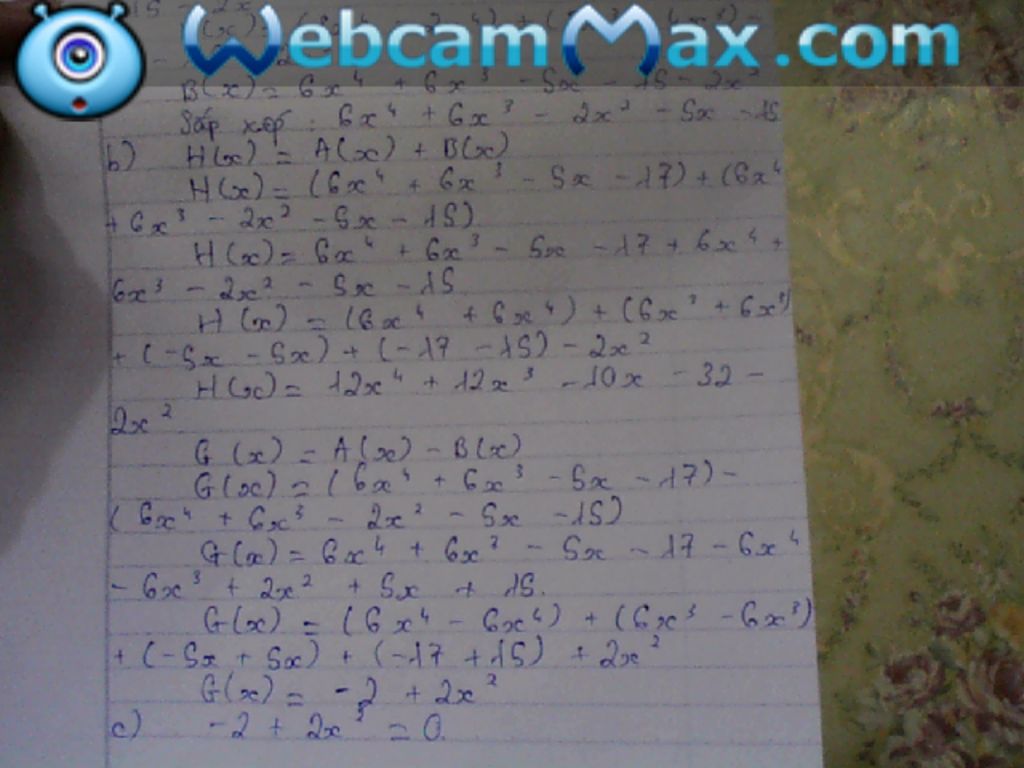 WebcamMax.com
B(x) = 6x⁴ + 6x³ - 5x - 15 - 2x²
Sắp xếp : 6x⁴ + 6x³ - 2x² - 5x - 15
b) H(x) = A(x) + B(x)
H(x) = (6x⁴ + 6x³ - 5x - 17) + (6x⁴
+ 6x³ - 2x² - 5x - 15)
H(x) = 6x⁴ + 6x³ - 5x - 17 + 6x⁴ +
6x³ - 2x² - 5x - 15
H(x) = (6x⁴ + 6x⁴) + (6x³ + 6x³)
+ (-5x - 5x) + (-17 - 15) - 2x²
H(x) = 12x⁴ + 12x³ - 10x - 32 -
2x²
G(x) = A(x) - B(x)
G(x) = (6x⁴ + 6x³ - 5x - 17) -
(6x⁴ + 6x³ - 2x² - 5x - 15)
G(x) = 6x⁴ + 6x³ - 5x - 17 - 6x⁴
- 6x³ + 2x² + 5x + 15.
G(x) = (6x⁴ - 6x⁴) + (6x³ - 6x³)
+ (-5x + 5x) + (-17 + 15) + 2x²
G(x) = -2 + 2x²
c) -2 + 2x² = 0.